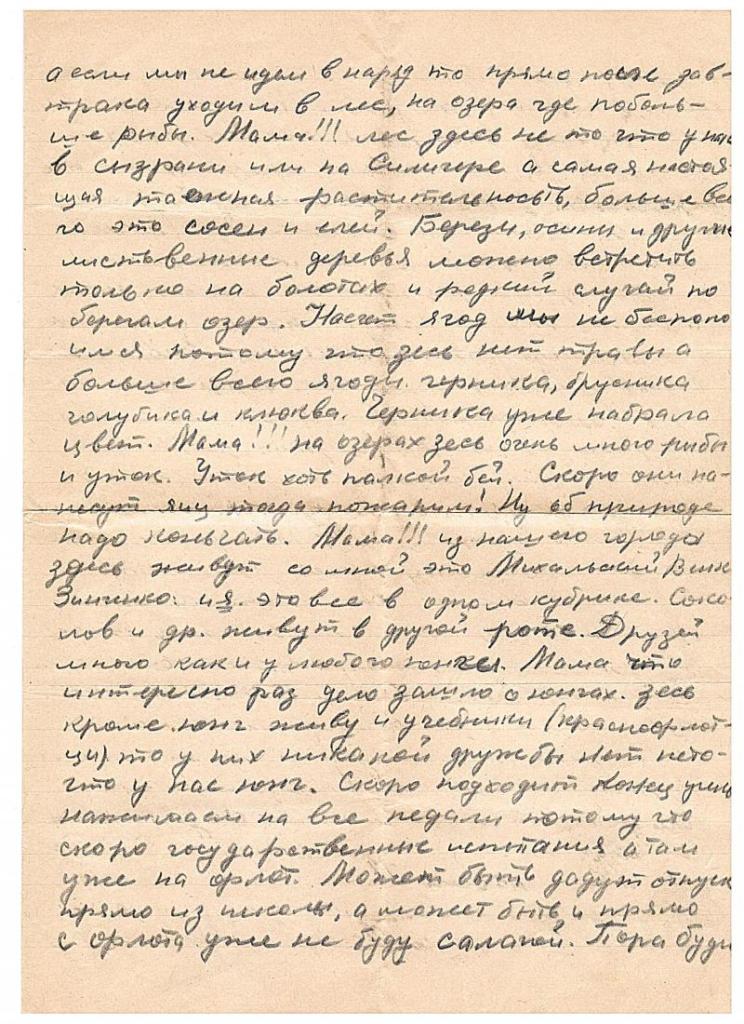 а если мы не идем в наряд то прямо после зав-
трака уходим в лес, на озера где поболь-
ше рыбы. Мама!!! лес здесь не то что у нас
в сызрани или на Силигере а самая настоя-
щая таежная растительносьть, больше все
го это сосен и елей. Березы, осины и другие
лиственные деревья можно встретить
только на болотах и редкий случай по
берегам озер. Насчет ягод мы не беспоко
имся потому что зесь нет травы а
больше всего ягоды. черника, брусника
голубика и клюква. Черника уже набрала
цвет. Мама!!! на озерах зесь очень много рыбы
и уток. Уток хоть палкой бей. Скоро они на-
несут яиц тогда пожарим! Ну об природе
надо коньчать. Мама!!! из нашего города
здесь живут со мной это Михальский
Зинченко и я. это все в одном кубрике. Соко
лов и др. живут в другой роте. Друзей
много как и у любого юнги. Мама что
интересно раз дело зашло о юнгах. зесь
кроме юнг живу и учебники (краснофлот-
цы) то у них никакой дружбы нет нето-
что у нас юнг. Скоро подходит конец
нажимаем на все педали потому что
скоро государственные испытания а там
уже на флот. Может быть дадут отпуск
прямо из школы, а может быть и прямо
с флота уже не буду салагой. Пора